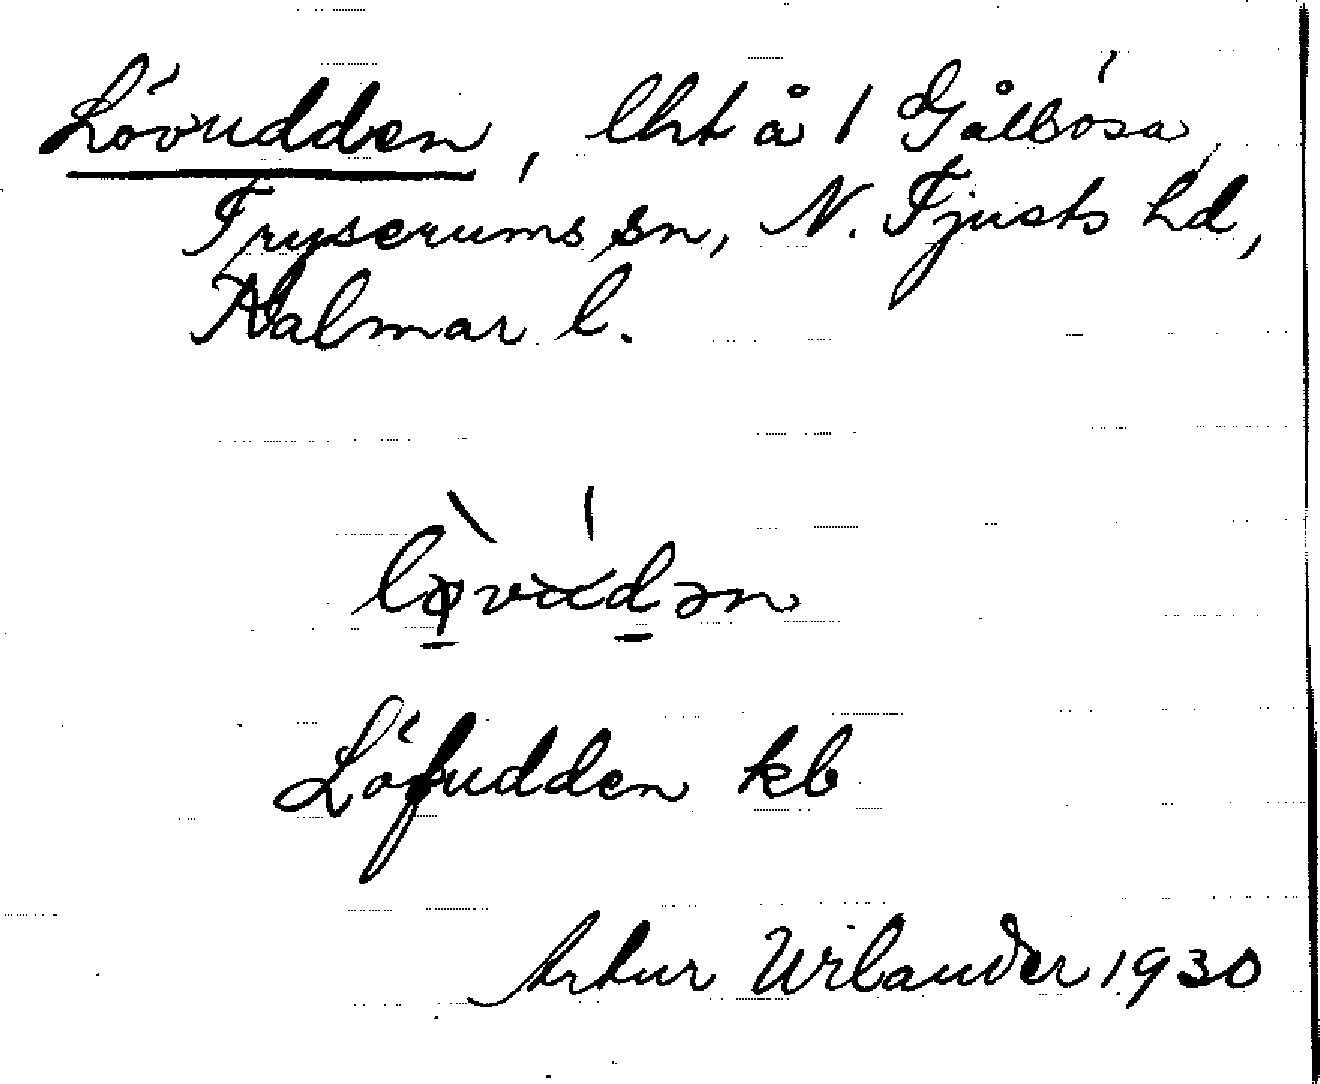 Lövudden, lht å 1 Gålbösa,
Tryserums sn, N. Tjusts hd,
Kalmar l.
Löfudden kb
Artur Wilander 1930